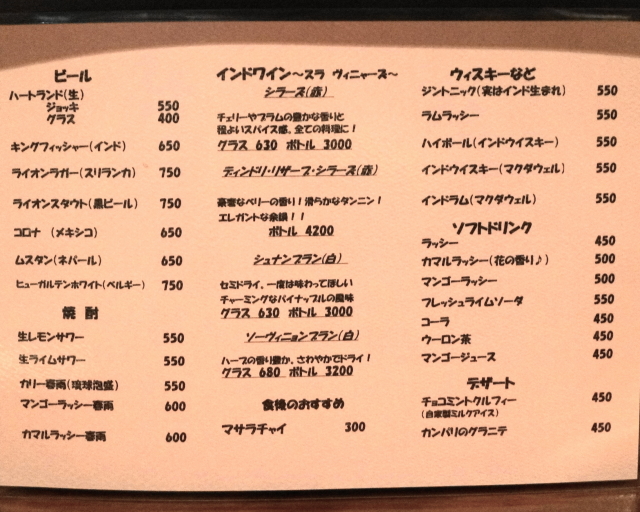 ビール
ハートランド(生)
ジョッキ 550
グラス 400
キングフィッシャー(インド) 650
ライオンラガー(スリランカ) 750
ライオンスタウト(黒ビール) 750
コロナ (メキシコ) 650
ムスタン(ネパール) 650
ヒューガルデンホワイト(ベルギー) 750
焼 酎
生レモンサワー 550
生ライムサワー 550
カリー春雨(琉球泡盛) 550
マンゴーラッシー春雨 600
カマルラッシー春雨 600
インドワイン~スラ ヴィニャーズ~
シラーズ(赤)
チェリーやプラムの豊かな香りと
程よいスパイス感、全ての料理に!
グラス 630 ボトル 3000
ディンドリ・リザーブ・シラーズ(赤)
豪奢なベリーの香り!滑らかなタンニン!
エレガントな余韻!!
ボトル 4200
シュナンブラン(白)
セミドライ、一度は味わってほしい
チャーミングなパイナップルの風味
グラス 630 ボトル 3000
ソーヴィニョンブラン(白)
ハーブの香り豊か、さわやかでドライ!
グラス 680 ボトル 3200
食後のおすすめ
マサラチャイ 300
ウィスキーなど
ジントニック(実はインド生まれ) 550
ラムラッシー 550
ハイボール(インドウイスキー) 550
インドウイスキー(マクダウェル) 550
インドラム(マクダウェル) 550
ソフトドリンク
ラッシー 450
カマルラッシー(花の香り♪) 500
マンゴーラッシー 500
フレッシュライムソーダ 550
コーラ 450
ウーロン茶 450
マンゴージュース 450
デザート
チョコミントクルフィー 450
(自家製ミルクアイス)
カンパリのグラニテ 450